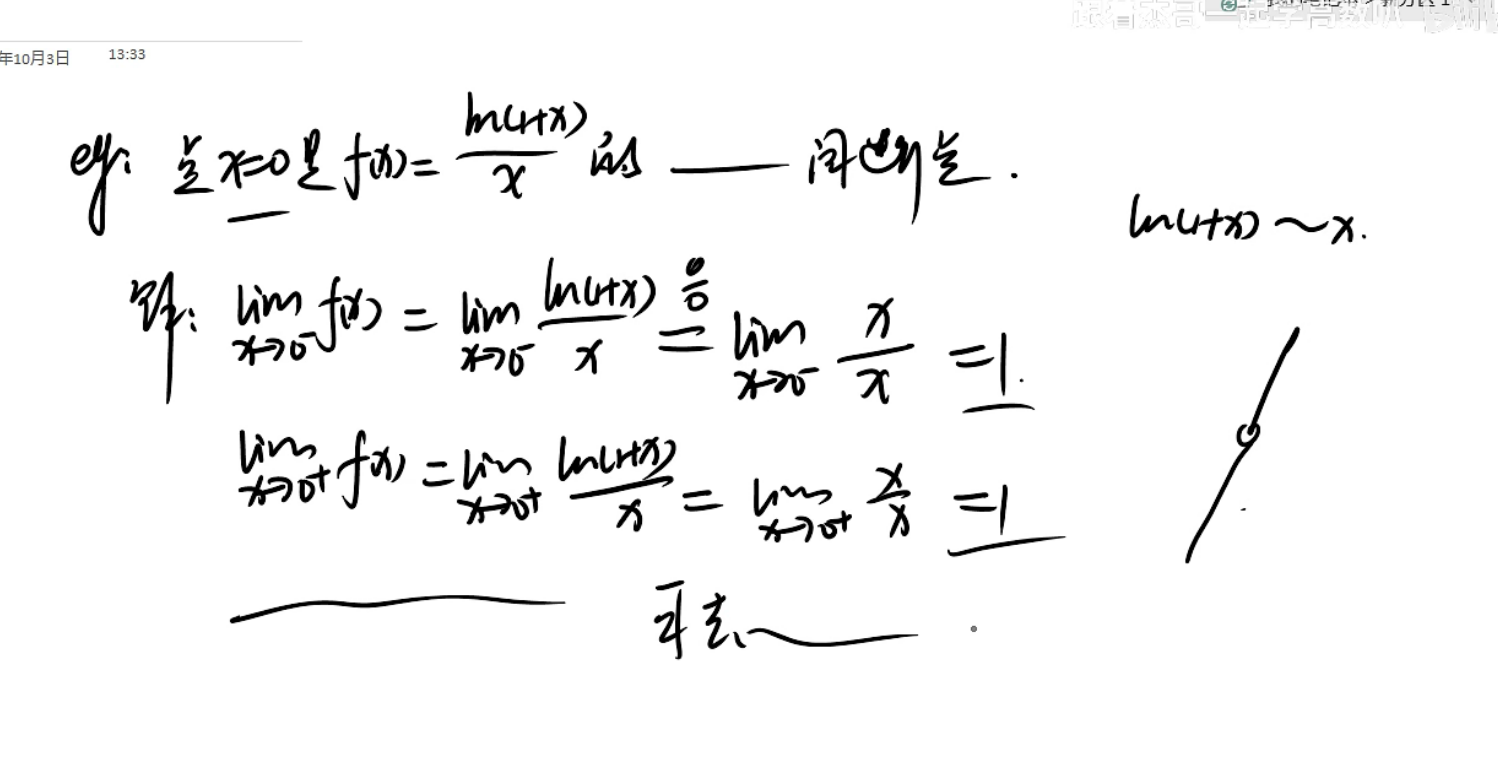 跟着杰哥一起学高数
年10月3日 13:33
eg: 点 x=0 是 f(x)= ln(1+x)/x 的 —— 间断点.
ln(1+x) ~ x.
解: lim x→0⁻ f(x) = lim x→0⁻ ln(1+x)/x =(0/0) lim x→0⁻ x/x =1.
lim x→0⁺ f(x) = lim x→0⁺ ln(1+x)/x = lim x→0⁺ x/x =1
可去